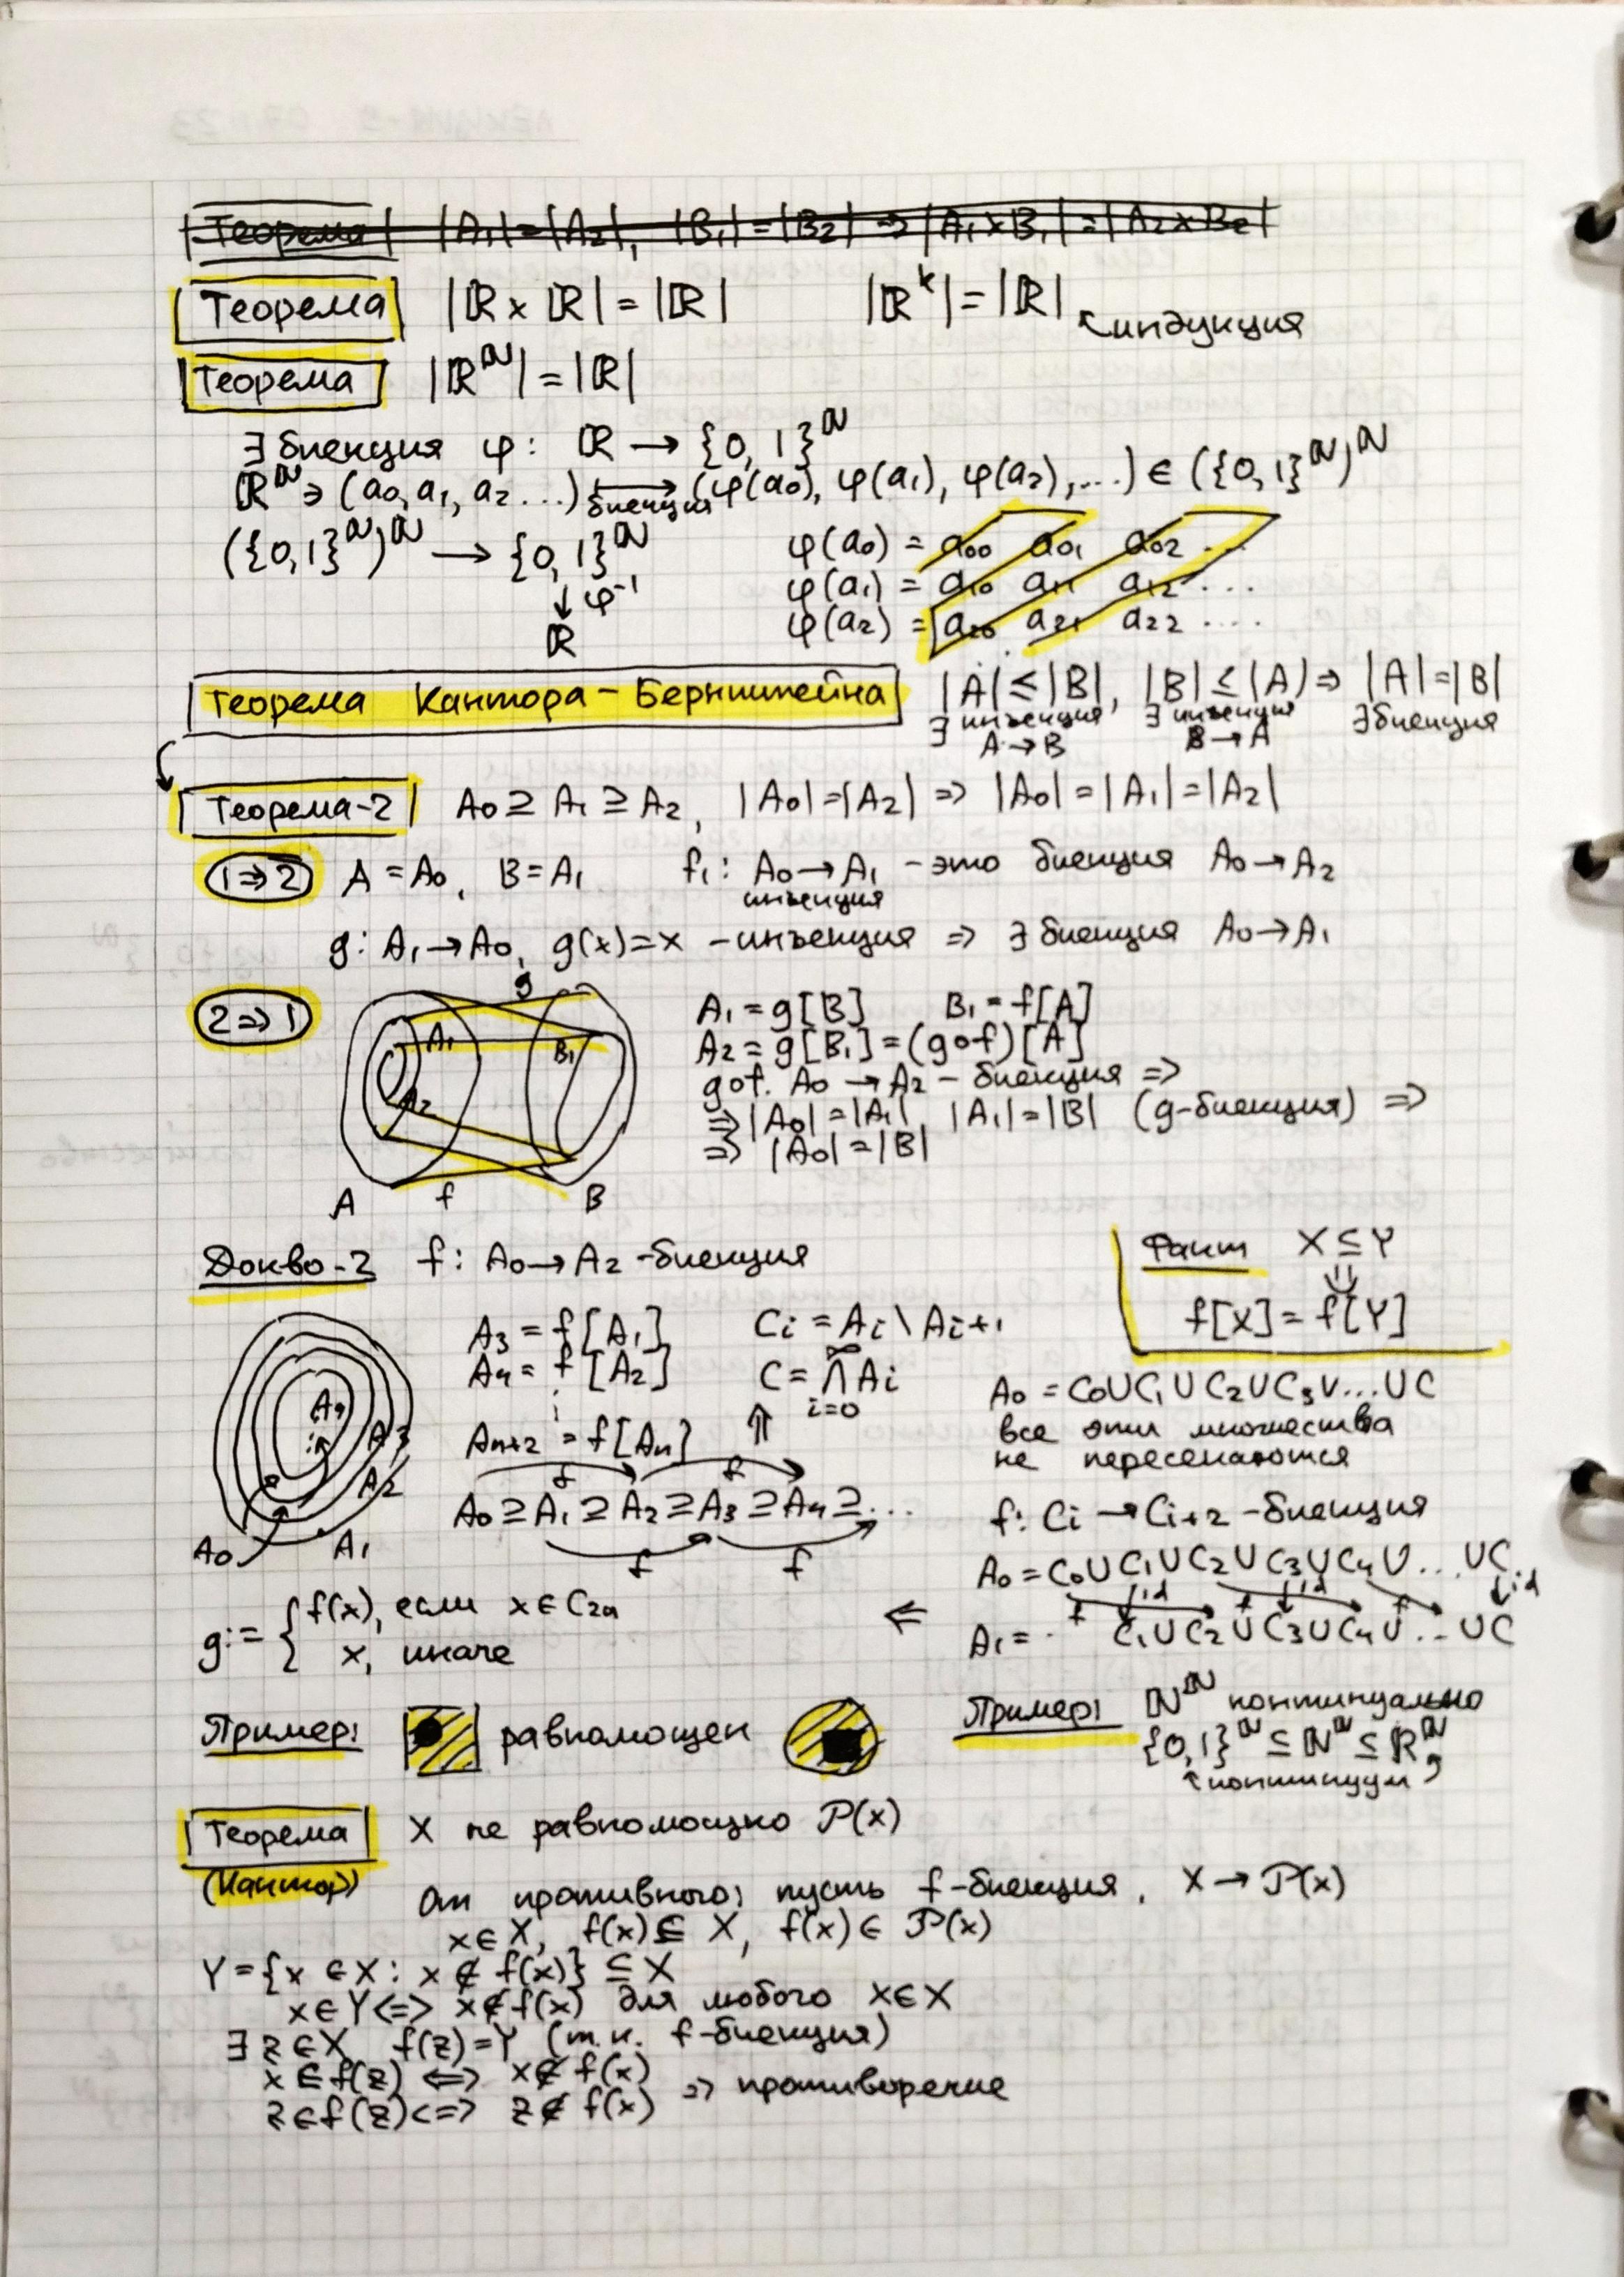 Теорема |A₁|=|A₂|, |B₁|=|B₂| ⇒ |A₁×B₁|=|A₂×B₂|
Теорема |ℝ×ℝ|=|ℝ| |ℝᵏ|=|ℝ| ↖индукция
Теорема |ℝ^ℕ|=|ℝ|
∃ биекция φ: ℝ → {0,1}^ℕ
ℝ^ℕ∋(a₀,a₁,a₂...) ⟼ (φ(a₀), φ(a₁), φ(a₂),...) ∈ ({0,1}^ℕ)^ℕ
биекция
({0,1}^ℕ)^ℕ → {0,1}^ℕ
↓ φ⁻¹
ℝ
φ(a₀) = a₀₀ a₀₁ a₀₂ ...
φ(a₁) = a₁₀ a₁₁ a₁₂ ...
φ(a₂) = a₂₀ a₂₁ a₂₂ ....
Теорема Кантора-Бернштейна |A|≤|B|, |B|≤|A| ⇒ |A|=|B|
∃ инъекция A→B ∃ инъекция B→A ∃ биекция
Теорема-2 A₀ ⊇ A₁ ⊇ A₂, |A₀|=|A₂| ⇒ |A₀|=|A₁|=|A₂|
1⇒2 A=A₀, B=A₁ f₁: A₀→A₁ - это биекция A₀→A₂
инъекция
g: A₁→A₀, g(x)=x - инъекция ⇒ ∃ биекция A₀→A₁
2⇒1
g
A₁ B₁
A₂
A f B
A₁=g[B] B₁=f[A]
A₂=g[B₁]=(g∘f)[A]
g∘f. A₀→A₂ - биекция ⇒
⇒|A₀|=|A₁| |A₁|=|B| (g-биекция) ⇒
⇒ |A₀|=|B|
Док-во-2 f: A₀→A₂ - биекция
Факт X⊆Y
⇓
f[X]=f[Y]
A₄
A₃
A₂
A₀ A₁
A₃=f[A₁] Cᵢ=Aᵢ\Aᵢ₊₁
A₄=f[A₂] C=⋂Aᵢ
∞ i=0
⋮
Aₙ₊₂=f[Aₙ] ⇑
f f
A₀⊇A₁⊇A₂⊇A₃⊇A₄⊇...
f f
A₀=C₀∪C₁∪C₂∪C₃∪...∪C
все эти множества
не пересекаются
f: Cᵢ→Cᵢ₊₂ - биекция
A₀=C₀∪C₁∪C₂∪C₃∪C₄∪...∪C
f id f id f id
A₁=. C₁∪C₂∪C₃∪C₄∪...∪C
⇐
g:={ f(x), если x∈C₂ₙ
x, иначе
Пример: равномощен
Пример: ℕ^ℕ континуально
{0,1}^ℕ⊆ℕ^ℕ⊆ℝ^ℕ
↖континуум↗
Теорема X не равномощно P(x)
(Кантор)
От противного: пусть f-биекция, X→P(x)
x∈X, f(x)⊆X, f(x)∈P(x)
Y={x∈X: x∉f(x)}⊆X
x∈Y<=>x∉f(x) для любого x∈X
∃z∈X f(z)=Y (т.к. f-биекция)
x∈f(z) ⟺ x∉f(x)
z∈f(z)<=> z∉f(x) ⇒ противоречие